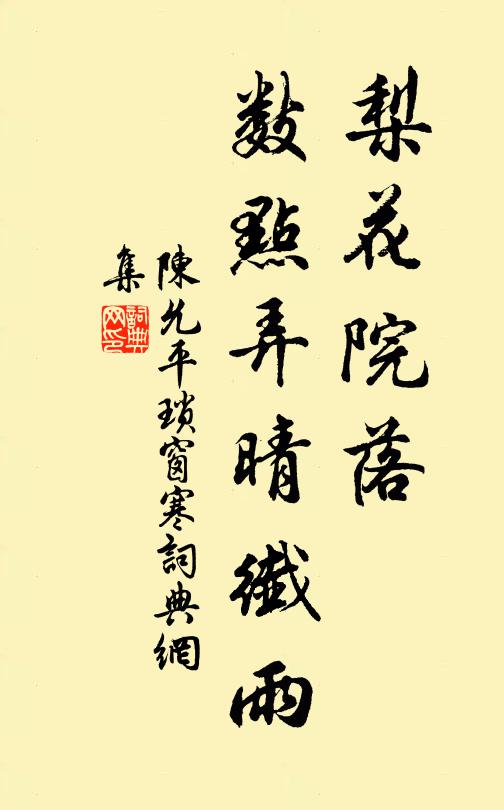 梨花院落
數點弄晴纖雨
陳允平瑣窗寒詞典網
集
詞典網印